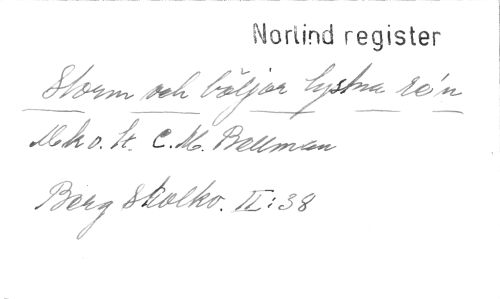 Norlind register
Storm och böljor tystna re'n
Mk o. t. C. M. Bellman
Berg Skolkv. II:38